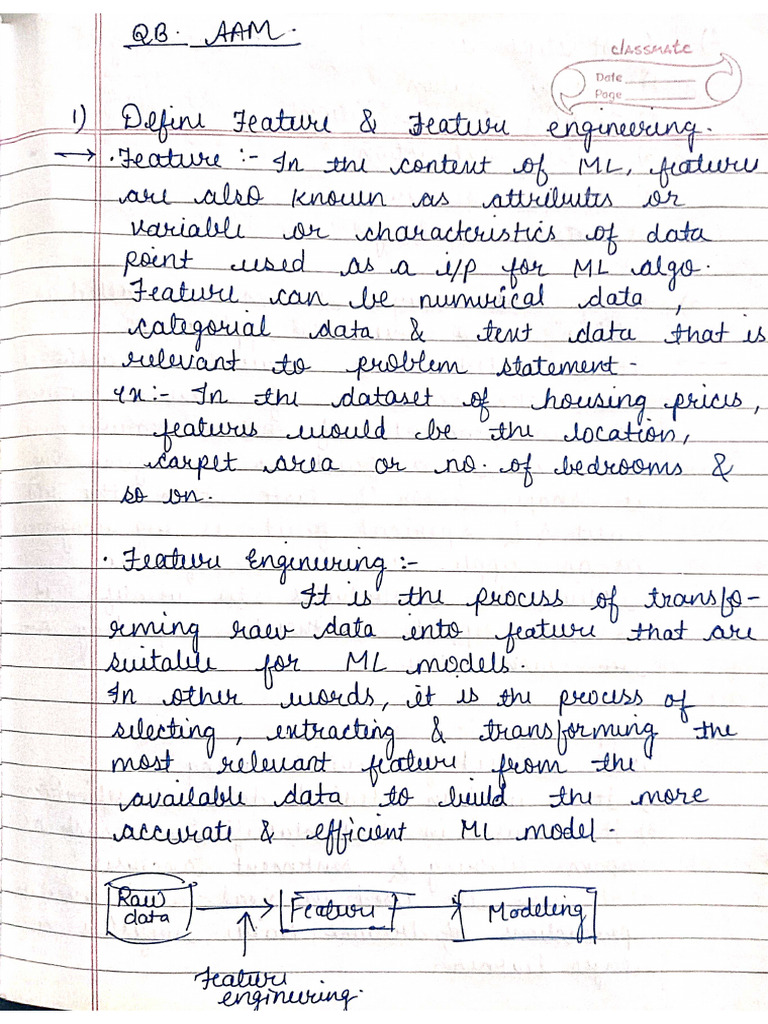 QB. AAM.
classmate
Date
Page
1) Define Feature & Feature engineering.
→ . Feature :- In the context of ML, features
are also known as attributes or
variable or characteristics of data
point used as a i/p for ML algo.
Feature can be numerical data,
categorial data & text data that is
relevant to problem statement -
ex:- In the dataset of housing prices,
features would be the location,
carpet area or no. of bedrooms &
so on.
. Feature Engineering :-
It is the process of transfo-
rming raw data into feature that are
suitable for ML models.
In other words, it is the process of
selecting, extracting & transforming the
most relevant feature from the
available data to build the more
accurate & efficient ML model.
Raw data → Feature → Modeling
Feature
engineering.